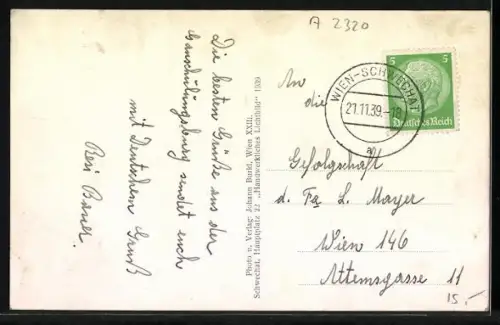 A 2320
Die besten Grüße aus der
Gauschulungsburg sendet euch
mit Deutschem Gruß
Resi Bauer.
Photo u. Verlag: Johann Burkl, Wien XXIII.
Schwechat, Hauptplatz 22 „Handwerkliches Lichtbild" 1939
5 5
Deutsches Reich
WIEN-SCHWECHAT
21.11.39.-18
a
An
die
Gefolgschaft
d. Fa L. Mayer
Wien 146
Attemsgasse 11
15,-